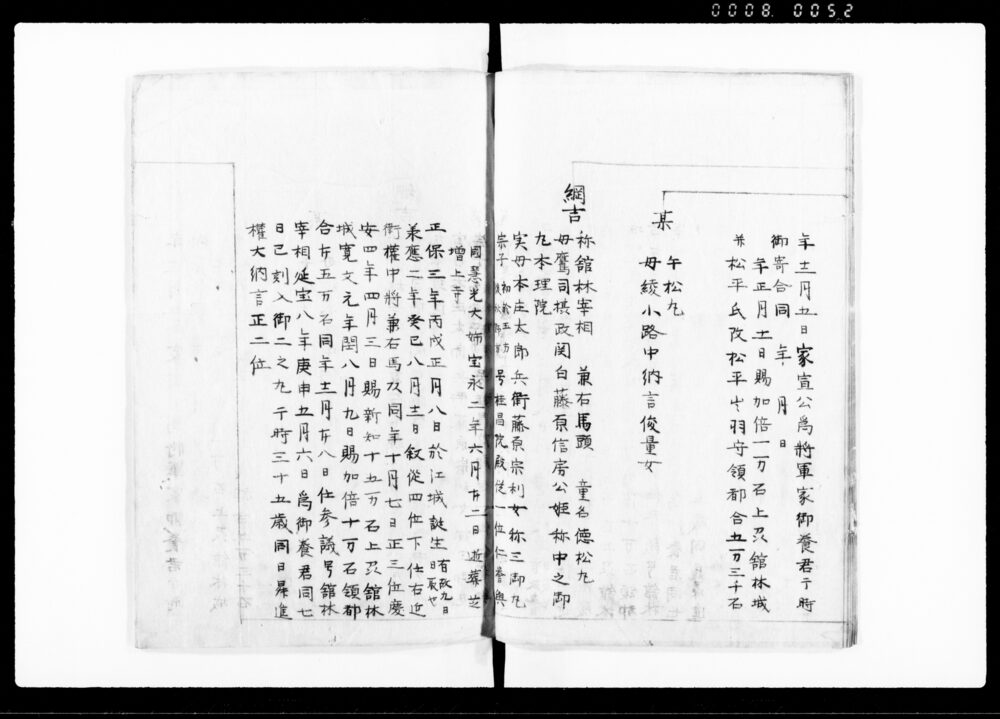 0008 0052
年十二月五日家宣公為將軍家御養君于時
御寄合同 年 月日
年正月十一日賜加倍一万石上忍舘林城
并松平氏改松平出羽守領都合五万三千石
某 午松丸
母綾小路中納言俊量女
綱吉 称舘林宰相 兼右馬頭 童名德松丸
母鷹司摂政関白藤原信房公姫称中之御
丸本理院
実母本庄太郎兵衛藤原宗利女称三御丸
宗子 号桂昌院殿従一位仁誉興
国慧光大姉宝永二年六月廿二日逝葬芝
増上寺
正保三年丙戌正月八日於江城誕生
承應二年癸巳八月十二日叙從四位下任右近
衛權中將兼右馬頭同年十月七日正三位慶
安四年四月三日賜新知十五万石上忍舘林
城寛文元年閏八月九日賜加倍十万石領都
合廿五万石同年十二月廿八日任參議号舘林
宰相延宝八年庚申五月六日為御養君同七
日巳刻入御二之丸于時三十五歳同日昇進
權大納言正二位